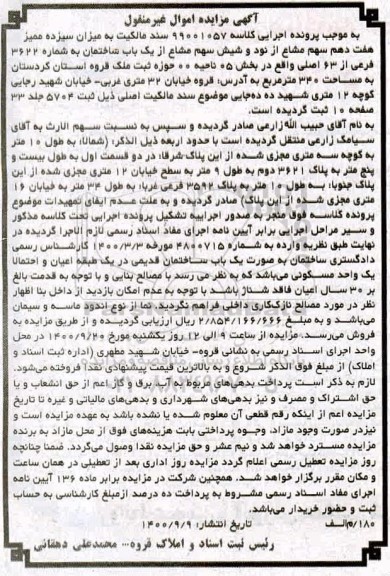 آگهی مزایده اموال غیرمنقول
به موجب پرونده اجرایی کلاسه ۹۹۰۰۱۰۵۷ سند مالکیت به میزان سیزده ممیز
هفت دهم سهم مشاع از نود و شیش سهم مشاع از یک باب ساختمان به شماره ۳۶۲۲
فرعی از ۶۳ اصلی واقع در بخش ۰۵ ناحیه ۰۰ حوزه ثبت ملک قروه استان کردستان
به مساحت ۳۴۰ مترمربع به آدرس: قروه خیابان ۳۲ متری غربی- خیابان شهید رجایی
کوچه ۱۲ متری شهید ده ده‌جایی موضوع سند مالکیت اصلی ذیل ثبت ۵۷۰۴ جلد ۳۳
صفحه ۱۰ ثبت گردیده است.
به نام آقای حبیب الله زارعی صادر گردیده و سپس به نسبت سهم الارث به آقای
سیامک زارعی منتقل گردیده است با حدود اربعه ذیل الذکر: (شمالا: به طول ۱۰ متر
به کوچه سه متری مجزی شده از این پلاک شرقا: در دو قسمت اول به طول بیست و
پنج متر به پلاک ۳۶۲۱ دوم به طول ۹ متر به سطح خیابان ۱۲ متری مجزی شده از این
پلاک جنوبا: به طول ۱۰ متر به پلاک ۳۵۹۲ فرعی غربا: به طول ۳۴ متر به خیابان ۱۶
متری مجزی شده از این پلاک) صادر گردیده و به علت عدم ایفای تعهدات موضوع
پرونده کلاسه فوق منجر به صدور اجراییه تشکیل پرونده اجرایی تحت کلاسه مذکور
و سیر مراحل اجرایی برابر آیین نامه اجرای مفاد اسناد رسمی لازم الاجرا گردیده در
نهایت طبق نظریه وارده به شماره ۴۸۰۰۷۱۵ مورخه ۱۴۰۰/۳/۳ کارشناس رسمی
دادگستری ساختمان به صورت یک باب ساختمان قدیمی در یک طبقه اعیان و احتمالا
یک واحد مسکونی می‌باشد که به نظر می رسد با مصالح بنایی و با توجه به قدمت بالغ
بر ۳۰ سال اعیان فاقد شناژ باشد با توجه به عدم امکان بازدید از داخل بنا اظهار
نظر در مورد مصالح نازک‌کاری داخلی فراهم نگردید. نما از نوع اندود ماسه و سیمان
می‌باشد و به مبلغ ۲/۸۵۴/۱۶۶/۶۶۶ ریال ارزیابی گردیده و از طریق مزایده به
فروش می‌رسد. مزایده از ساعت ۹ الی ۱۲ روز یکشنبه مورخ ۱۴۰۰/۹/۲۰ در محل
واحد اجرای اسناد رسمی به نشانی قروه- خیابان شهید مطهری (اداره ثبت اسناد و
املاک) از مبلغ فوق الذکر شروع و به بالاترین قیمت پیشنهادی نقدا فروخته می‌شود.
لازم به ذکر است پرداخت بدهی‌های مربوط به آب، برق و گاز اعم از حق انشعاب و یا
حق اشتراک و مصرف و نیز بدهی‌های شهرداری و بدهی‌های مالیاتی و غیره تا تاریخ
مزایده اعم از اینکه رقم قطعی آن معلوم شده یا نشده باشد به عهده مزایده است و
نیز در صورت وجود مازاد، وجوه پرداختی بابت هزینه‌های فوق از محل مازاد به برنده
مزایده مسترد خواهد شد و نیم عشر و حق مزایده نقدا وصول می‌گردد. ضمنا چنانچه
روز مزایده تعطیل رسمی اعلام گردد مزایده روز اداری بعد از تعطیلی در همان ساعت
و مکان مقرر برگزار خواهد شد. همچنین شرکت در مزایده برابر ماده ۱۳۶ آیین نامه
اجرای مفاد اسناد رسمی مشروط به پرداخت ده درصد از مبلغ کارشناسی به حساب
ثبت و حضور خریدار می‌باشد.
۱۸۰/م‌الف تاریخ انتشار: ۱۴۰۰/۹/۹
رئیس ثبت اسناد و املاک قروه... محمدعلی دهقانی